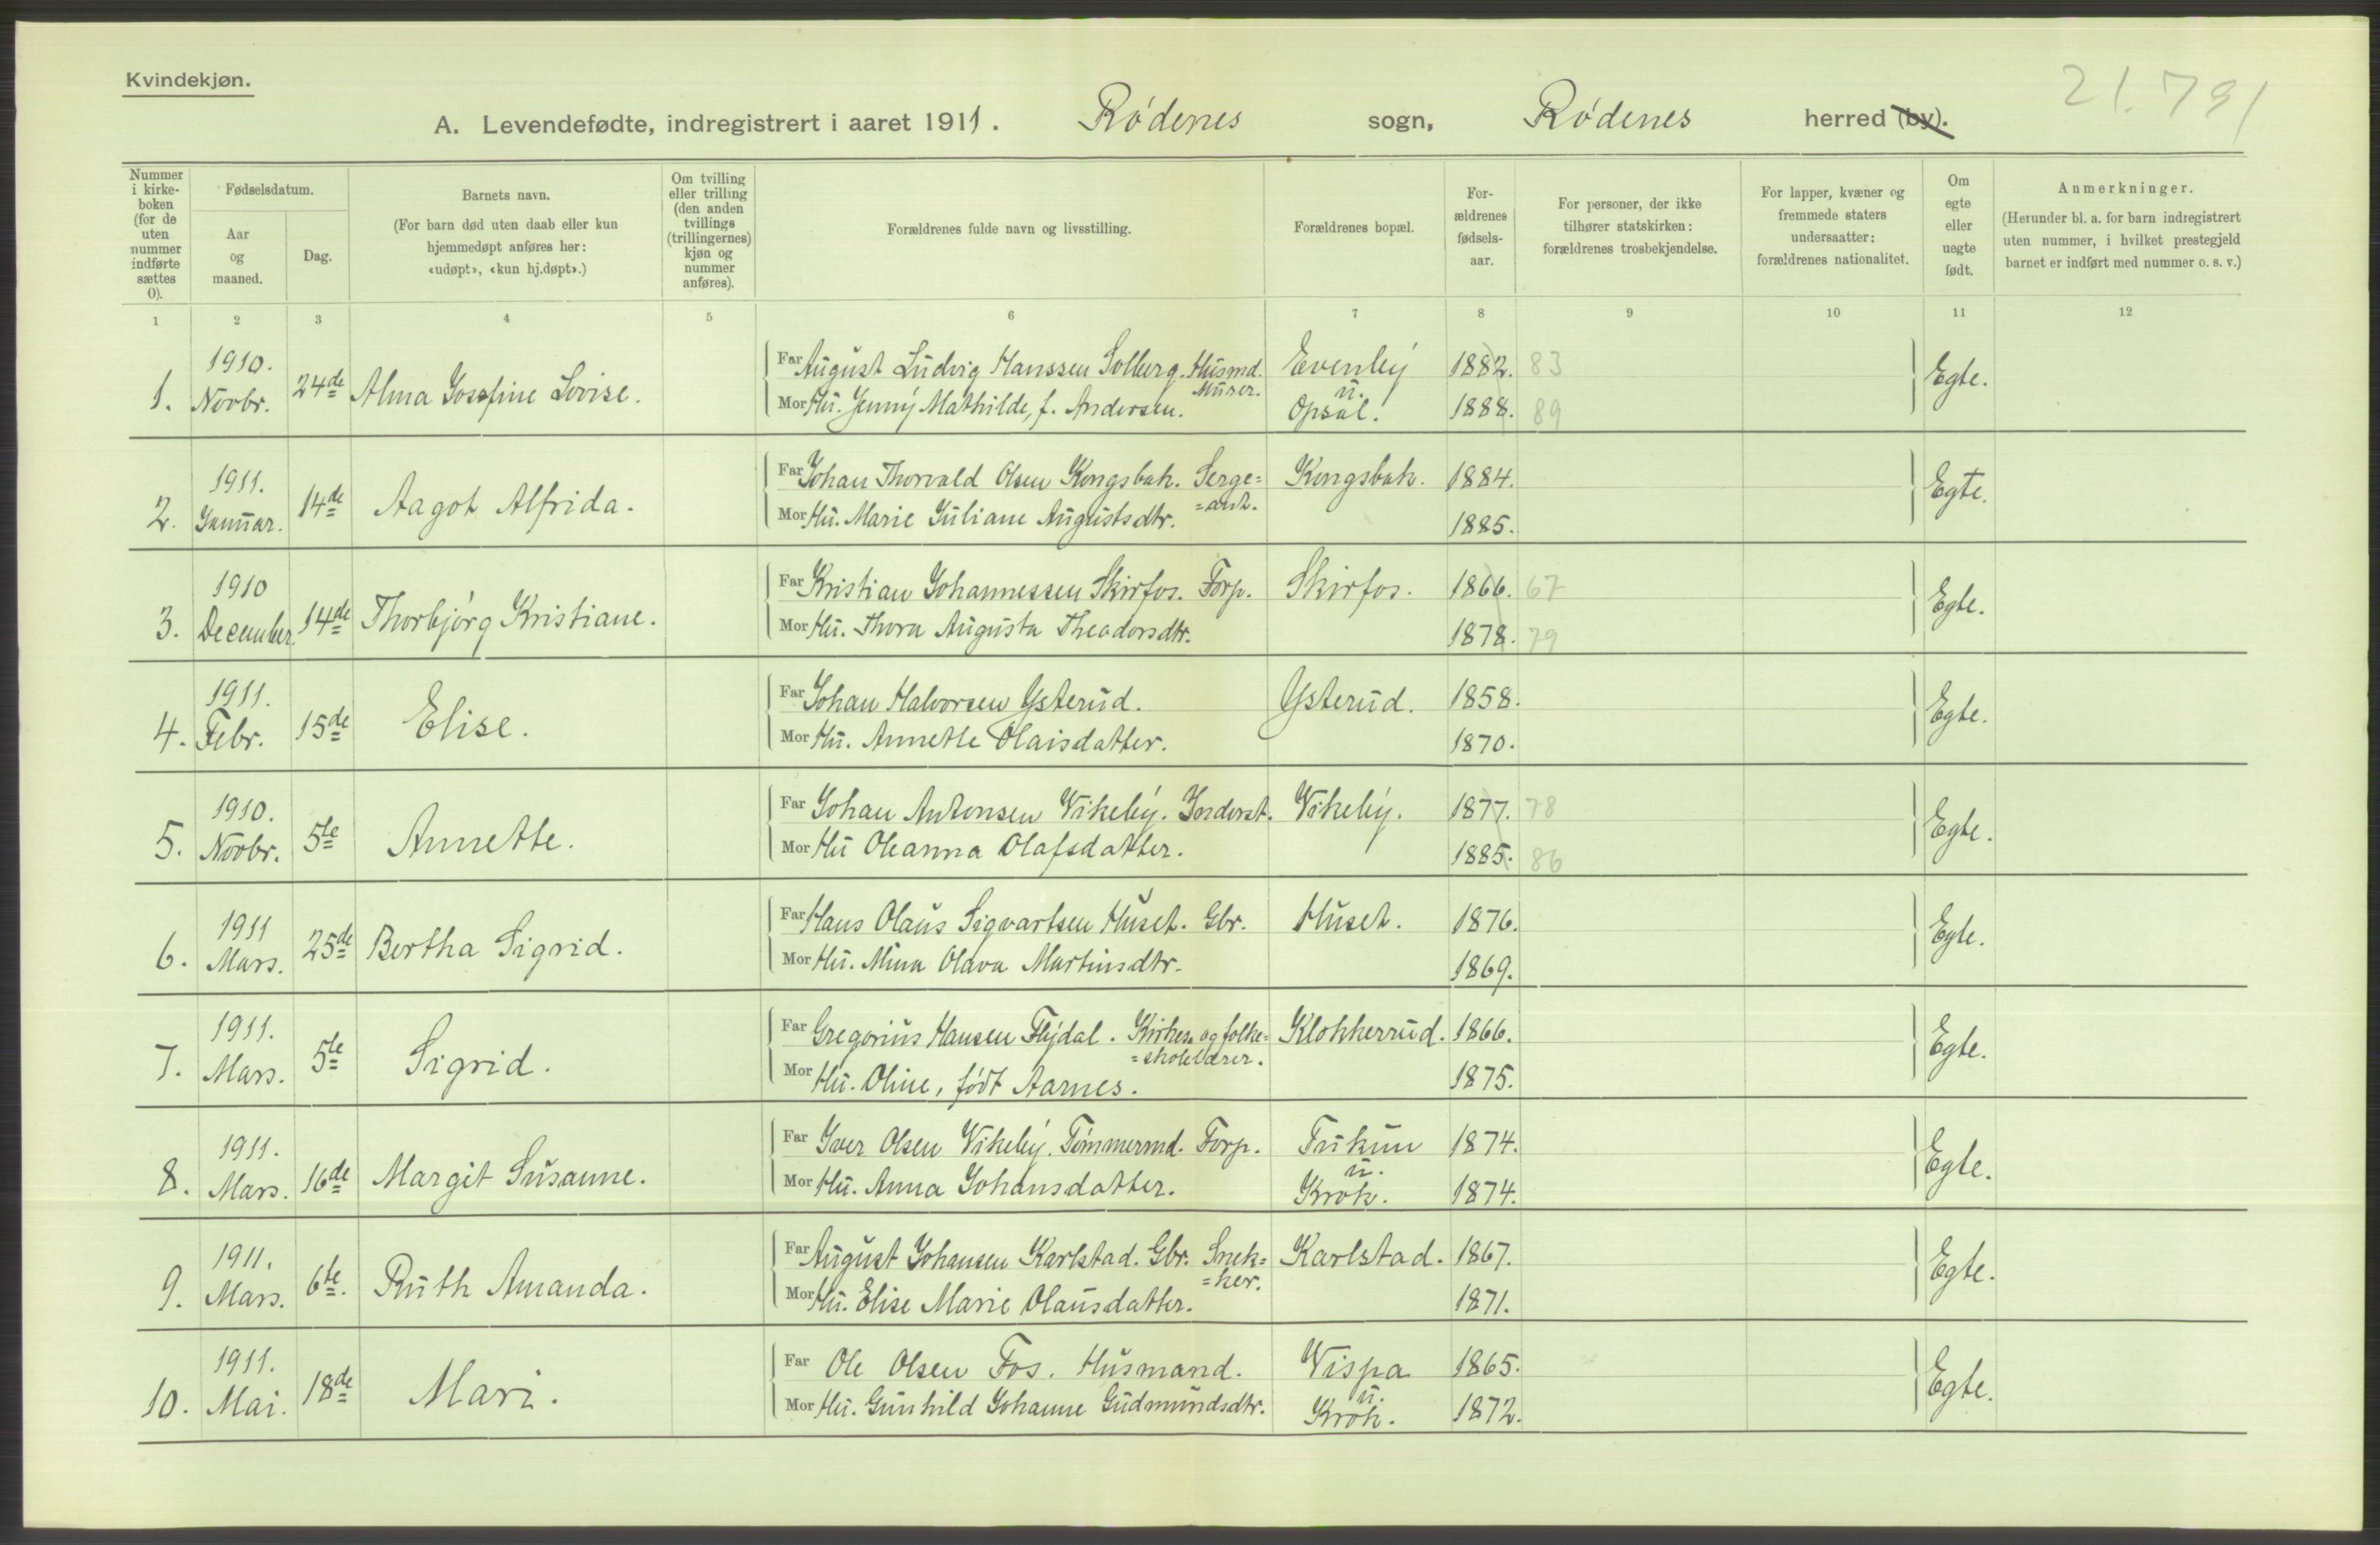 Kvindekjøn.
21.791
A. Levendefødte, indregistrert i aaret 1911. Rødenes sogn, Rødenes herred (by).
Nummer i kirkeboken (for de uten nummer indførte sættes 0).
Fødselsdatum.
Aar og maaned.
Dag.
Barnets navn.
(For barn død uten daab eller kun hjemmedøpt anføres her: «udøpt», «kun hj.døpt».)
Om tvilling eller trilling (den anden tvillings (trillingernes) kjøn og nummer anføres).
Forældrenes fulde navn og livsstilling.
Forældrenes bopæl.
For-ældrenes fødsels-aar.
For personer, der ikke tilhører statskirken: forældrenes trosbekjendelse.
For lapper, kvæner og fremmede staters undersaatter: forældrenes nationalitet.
Om egte eller uegte født.
Anmerkninger.
(Herunder bl. a. for barn indregistrert uten nummer, i hvilket prestegjeld barnet er indført med nummer o. s. v.)
1 2 3 4 5 6 7 8 9 10 11 12
1. 1910. Novbr. 24de Alma Josefine Lovise.
Far August Ludvig Hanssen Solberg. Husmd. Murer. Evenby 1882. 83
Mor Hu. Jenny Mathilde, f. Andersen. u. Opsal. 1888. 89 Egte.
2. 1911. Januar. 14de Aagot Alfrida.
Far Johan Thorvald Olsen Kongsbak. Serge=
=ant. Kongsbak. 1884.
Mor Hu. Marie Juliane Augustsdtr. 1885. Egte.
3. 1910 December. 14de Thorbjørg Kristiane.
Far Kristian Johannessen Skirfos. Forp. Skirfos. 1866. 67
Mor Hu. Thora Augusta Theodorsdtr. 1878. 79 Egte.
4. 1911. Febr. 15de Elise.
Far Johan Halvorsen Ysterud. Ysterud. 1858.
Mor Hu. Annette Olaisdatter. 1870. Egte.
5. 1910. Novbr. 5te Annette.
Far Johan Antonsen Vikeby. Inderst. Vikeby. 1877. 78
Mor Hu Oleanna Olafsdatter. 1885. 86 Egte.
6. 1911 Mars. 25de Bertha Sigrid.
Far Hans Olaus Sigvartsen Huset. Gbr. Huset. 1876.
Mor Hu. Mina Olava Martinsdtr. 1869. Egte.
7. 1911. Mars. 5te Sigrid.
Far Gregorius Hansen Flydal. Kirkes. og folke=
=skolelærer. Klokkerrud. 1866.
Mor Hu. Oline, født Aarnes. 1875. Egte.
8. 1911. Mars. 16de Margit Susanne.
Far Iver Olsen Vikeby. Tømmermd. Forp. Tukun 1874.
Mor Hu. Anna Johansdatter. u. Krok. 1874. Egte.
9. 1911. Mars. 6te. Ruth Amanda.
Far August Johansen Karlstad. Gbr. Snek=
=ker. Karlstad. 1867.
Mor Hu. Elise Marie Olausdatter. 1871. Egte.
10. 1911. Mai. 18de Mari.
Far Ole Olsen Fos. Husmand. Vispa 1865.
Mor Hu. Gunhild Johanne Gudmundsdtr. u. Krok. 1872. Egte.